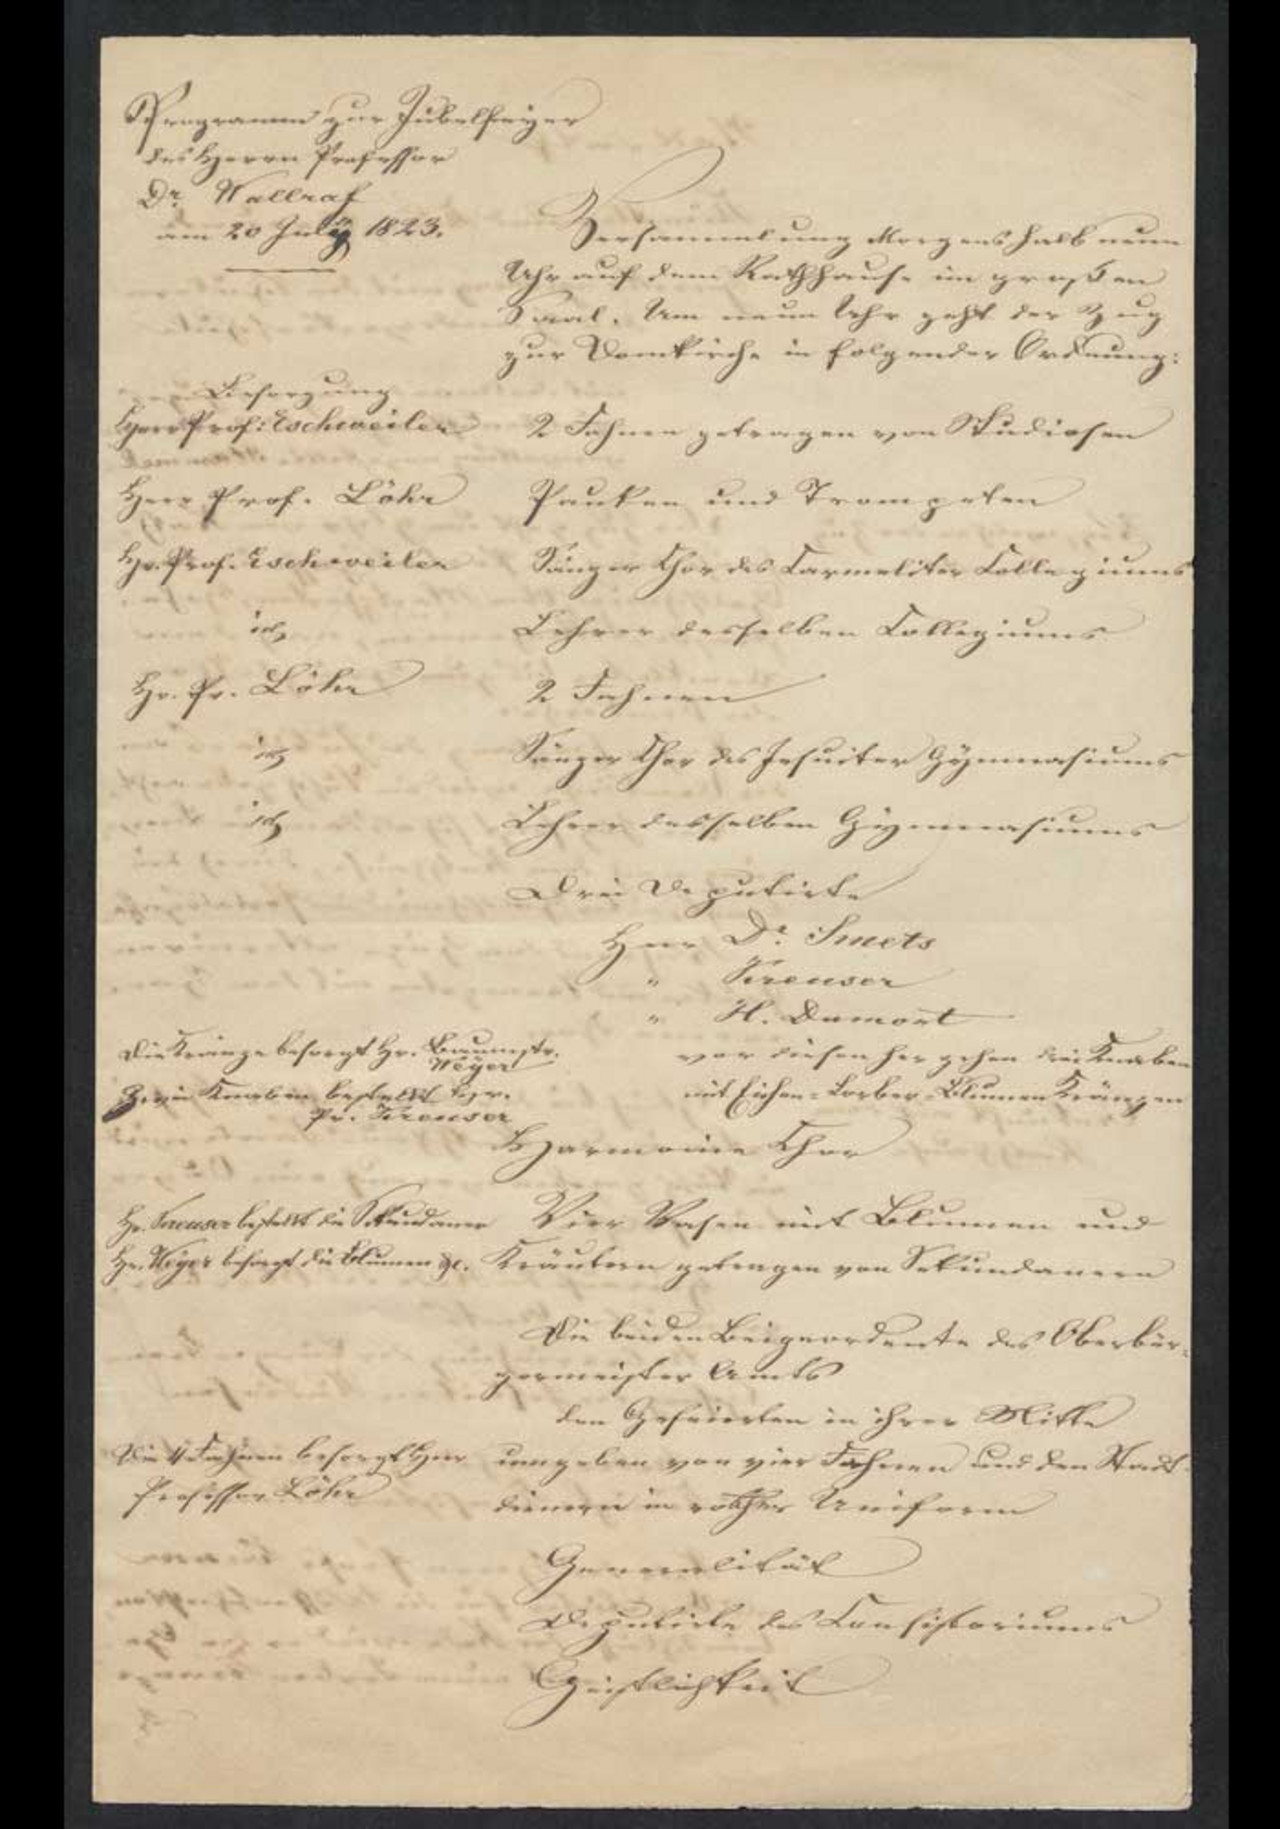 Programm zur Jubelfeyer
des Herrn Professor
Dr. Wallraf
am 20 July 1823.
Versammlung Morgens halb neun
Uhr auf dem Rathhause im großen
Saal. Um neun Uhr geht der Zug
zur Domkirche in folgender Ordnung:
Besorgung
Herr Prof: Eschweiler
2 Fahnen getragen von Studiosen
Herr Prof. Löhr
Pauken und Trompeten
Hr. Prof. Eschweiler
Sänger Chor des Carmeliter Collegiums
id.
Lehrer desselben Collegiums
Hr. Pr. Löhr
2 Fahnen
id.
Sänger Chor des Jesuiter Gymnasiums
id.
Lehrer desselben Gymnasiums
Drei Deputirte
Herr Dr. Smets
" Kreuser
" H. Dumont
Die Kränze besorgt Hr. Baumstr.
Weyer
vor diesen her gehen drei Knaben
Knaben bestellt Hr.
Pr. Kreuser
mit Eichen-Lorber-Blumen Kränzen
Harmonie Chor
Hr. Kreuser bestellt die Sekundaner
Hr. Weyer besorgt die Blumen &c.
Vier Vasen mit Blumen und
Kräutern getragen von Sekundanern
Die beiden Beigeordnete des Oberbür-
germeister Amts
den Gefeierten in ihrer Mitte
Die 4 Fahnen besorgt Herr
Professor Löhr
umgeben von vier Fahnen und den Stadt-
dienern in rother Uniform
Generalität
Deputirte des Consistoriums
Geistlichkeit